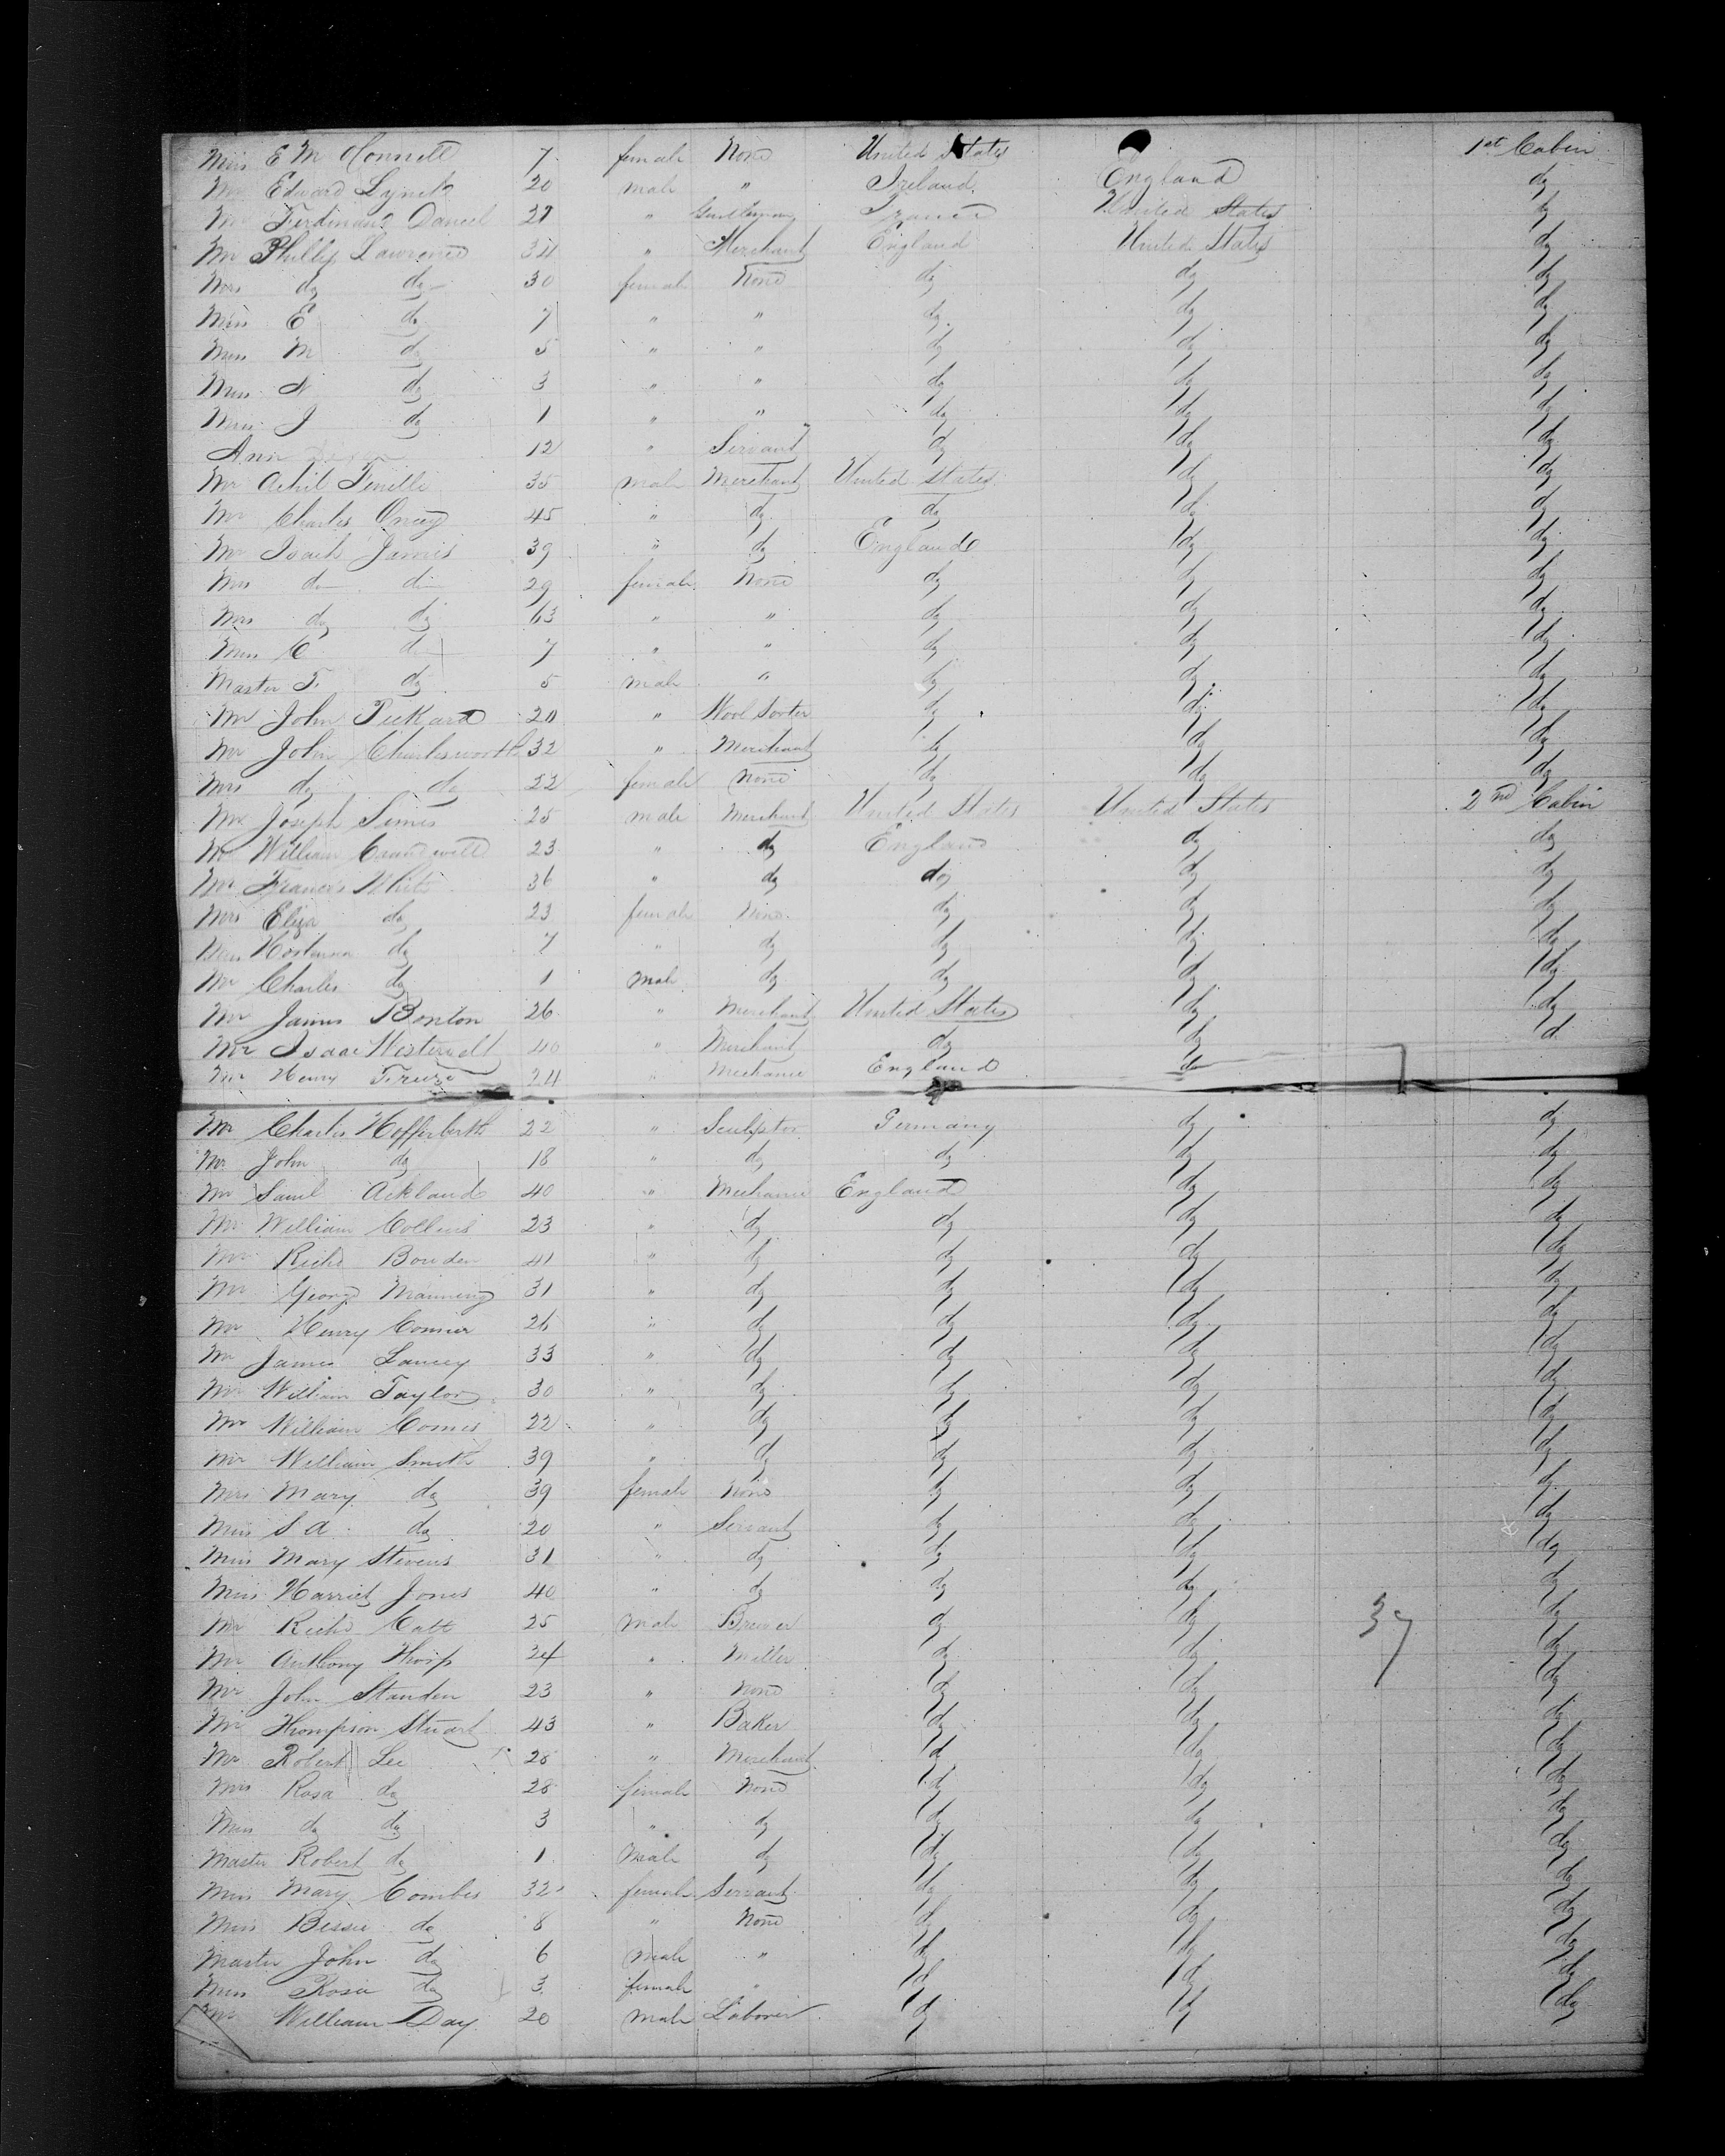 Miss E McConnell 7 female None United States 1st Cabin
Mr Edward Lynch 20 male " Ireland England do
Mr Ferdinand Daniel 27 " Gentleman France United States do
Mr Phillip Lawrence 34 " Merchant England United States do
Mrs do do 30 female None do do do
Miss E do 7 " " do do do
Miss M do 5 " " do do do
Miss N do 3 " " do do do
Miss J do 1 " " do do do
Ann 12 " Servant do do do
Mr Achil 35 male Merchant United States do do
Mr Charles 45 " do do do do
Mr Isach James 39 " do England do do
Mrs do do 29 female None do do do
Mrs do do 63 " " do do do
Miss C do 7 " " do do do
Master F. do 5 male " do do do
Mr John Pickard 20 " Wool Sorter do do do
Mr John Charlesworth 32 " Merchant do do do
Mrs do do 22 female None do do do
Mr Joseph Simes 25 male Merchant United States United States 2nd Cabin
Mr William 23 " do England do do
Mr Francis White 36 " do do do do
Mrs Eliza do 23 female None do do do
Miss do 7 " do do do do
Mr Charles do 1 male do do do do
Mr James Bonton 26 " Merchant United States do do
Mr Isaac Westervelt 40 " Merchant do do do
Mr Henry 24 " Mechanic England do
Mr Charles Hofferberth 22 " Sculptor Germany do do
Mr John do 18 " do do do do
Mr Saml Ackland 40 " Mechanic England do do
Mr William Collins 23 " do do do do
Mr Richd Bowden 41 " do do do do
Mr George Manning 31 " do do do do
Mr Henry 26 " do do do do
Mr James Lancey 33 " do do do do
Mr William Taylor 30 " do do do do
Mr William 22 " do do do do
Mr William Smith 39 " do do do do
Mrs Mary do 39 female None do do do
Miss S A do 20 " Servant do do do
Miss Mary Stevens 31 " do do do do
Miss Harriet Jones 40 " do do do do
Mr Richd Catt 25 male Brewer do do 37 do
Mr Anthony Thorp 24 " Miller do do do
Mr John Standen 23 " None do do do
Mr Thompson Stuart 43 " Baker do do do
Mr Robert Lee 28 " Merchant do do do
Mrs Rosa do 28 female None do do do
Miss do do 3 " do do do do
Master Robert do 1 Male do do do do
Miss Mary Combes 32 female Servant do do do
Miss Bessie do 8 " None do do do
Master John do 6 male " do do do
Miss Rosa do 3 female " do do do
Mr William Day 20 male Laborer do do do